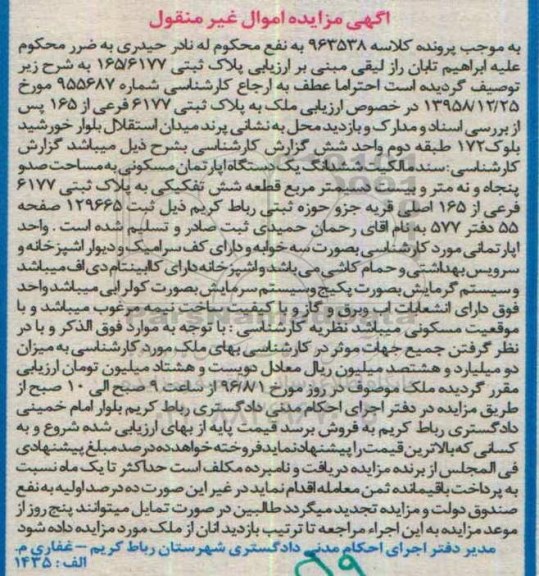 اگهی مزایده اموال غیر منقول
به موجب پرونده کلاسه ۹۶۳۵۳۸ به نفع محکوم له نادر حیدری به ضرر محکوم
علیه ابراهیم تابان راز لیقی مبنی بر ارزیابی پلاک ثبتی ۱۶۵/۶۱۷۷ به شرح زیر
توصیف گردیده است احتراما عطف به ارجاع کارشناسی شماره ۹۵۵۶۸۷ مورخ
۱۳۹۵۸/۱۲/۲۵ در خصوص ارزیابی ملک به پلاک ثبتی ۶۱۷۷ فرعی از ۱۶۵ پس
از بررسی اسناد و مدارک و بازدید محل به نشانی پرند میدان استقلال بلوار خورشید
بلوک ۱۷۲ طبقه دوم واحد شش گزارش کارشناسی بشرح ذیل میباشد گزارش
کارشناسی: سند مالکیت ششدانگ یک دستگاه اپارتمان مسکونی به مساحت صدو
پنجاه و نه متر و بیست دسیمتر مربع قطعه شش تفکیکی به پلاک ثبتی ۶۱۷۷
فرعی از ۱۶۵ اصلی قریه جزو حوزه ثبتی رباط کریم ذیل ثبت ۱۲۹۶۶۵ صفحه
۵۵ دفتر ۵۷۷ به نام اقای رحمان حمیدی ثبت صادر و تسلیم شده است . واحد
اپارتمانی مورد کارشناسی بصورت سه خوابه و دارای کف سرامیک و دیوار اشپزخانه و
سرویس بهداشتی و حمام کاشی می باشد و اشپزخانه دارای کابینت ام دی اف میباشد
و سیستم گرمایش بصورت پکیج و سیستم سرمایش بصورت کولر ابی میباشد واحد
فوق دارای انشعابات اب و برق و گاز و با کیفیت ساخت نسبتا مرغوب میباشد و با
موقعیت مسکونی میباشد نظریه کارشناسی : با توجه به موارد فوق الذکر و با در
نظر گرفتن جمیع جهات موثر در کارشناسی بهای ملک مورد کارشناسی به میزان
دو میلیارد و هشتصد میلیون ریال معادل دویست و هشتاد میلیون تومان ارزیابی
مقرر گردیده ملک موصوف در روز مورخ ۹۶/۸/۱ از ساعت ۹ صبح الی ۱۰ صبح از
طریق مزایده در دفتر اجرای احکام مدنی دادگستری رباط کریم بلوار امام خمینی
دادگستری رباط کریم به فروش برسد قیمت پایه از بهای ارزیابی شده شروع و به
کسانی که بالاترین قیمت را پیشنهاد نماید فروخته خواهد ده درصد مبلغ پیشنهادی
فی المجلس از برنده مزایده دریافت و نامبرده مکلف است حداکثر تا یک ماه نسبت
به پرداخت باقیمانده ثمن معامله اقدام نماید در غیر این صورت ده درصد اولیه به نفع
صندوق دولت و مزایده تجدید میگردد طالبین در صورت تمایل میتوانند پنج روز از
موعد مزایده به این اجراء مراجعه تا ترتیب بازدید انان از ملک مورد مزایده داده شود
مدیر دفتر اجرای احکام مدنی دادگستری شهرستان رباط کریم – غفاری م.
الف : ۱۴۳۵